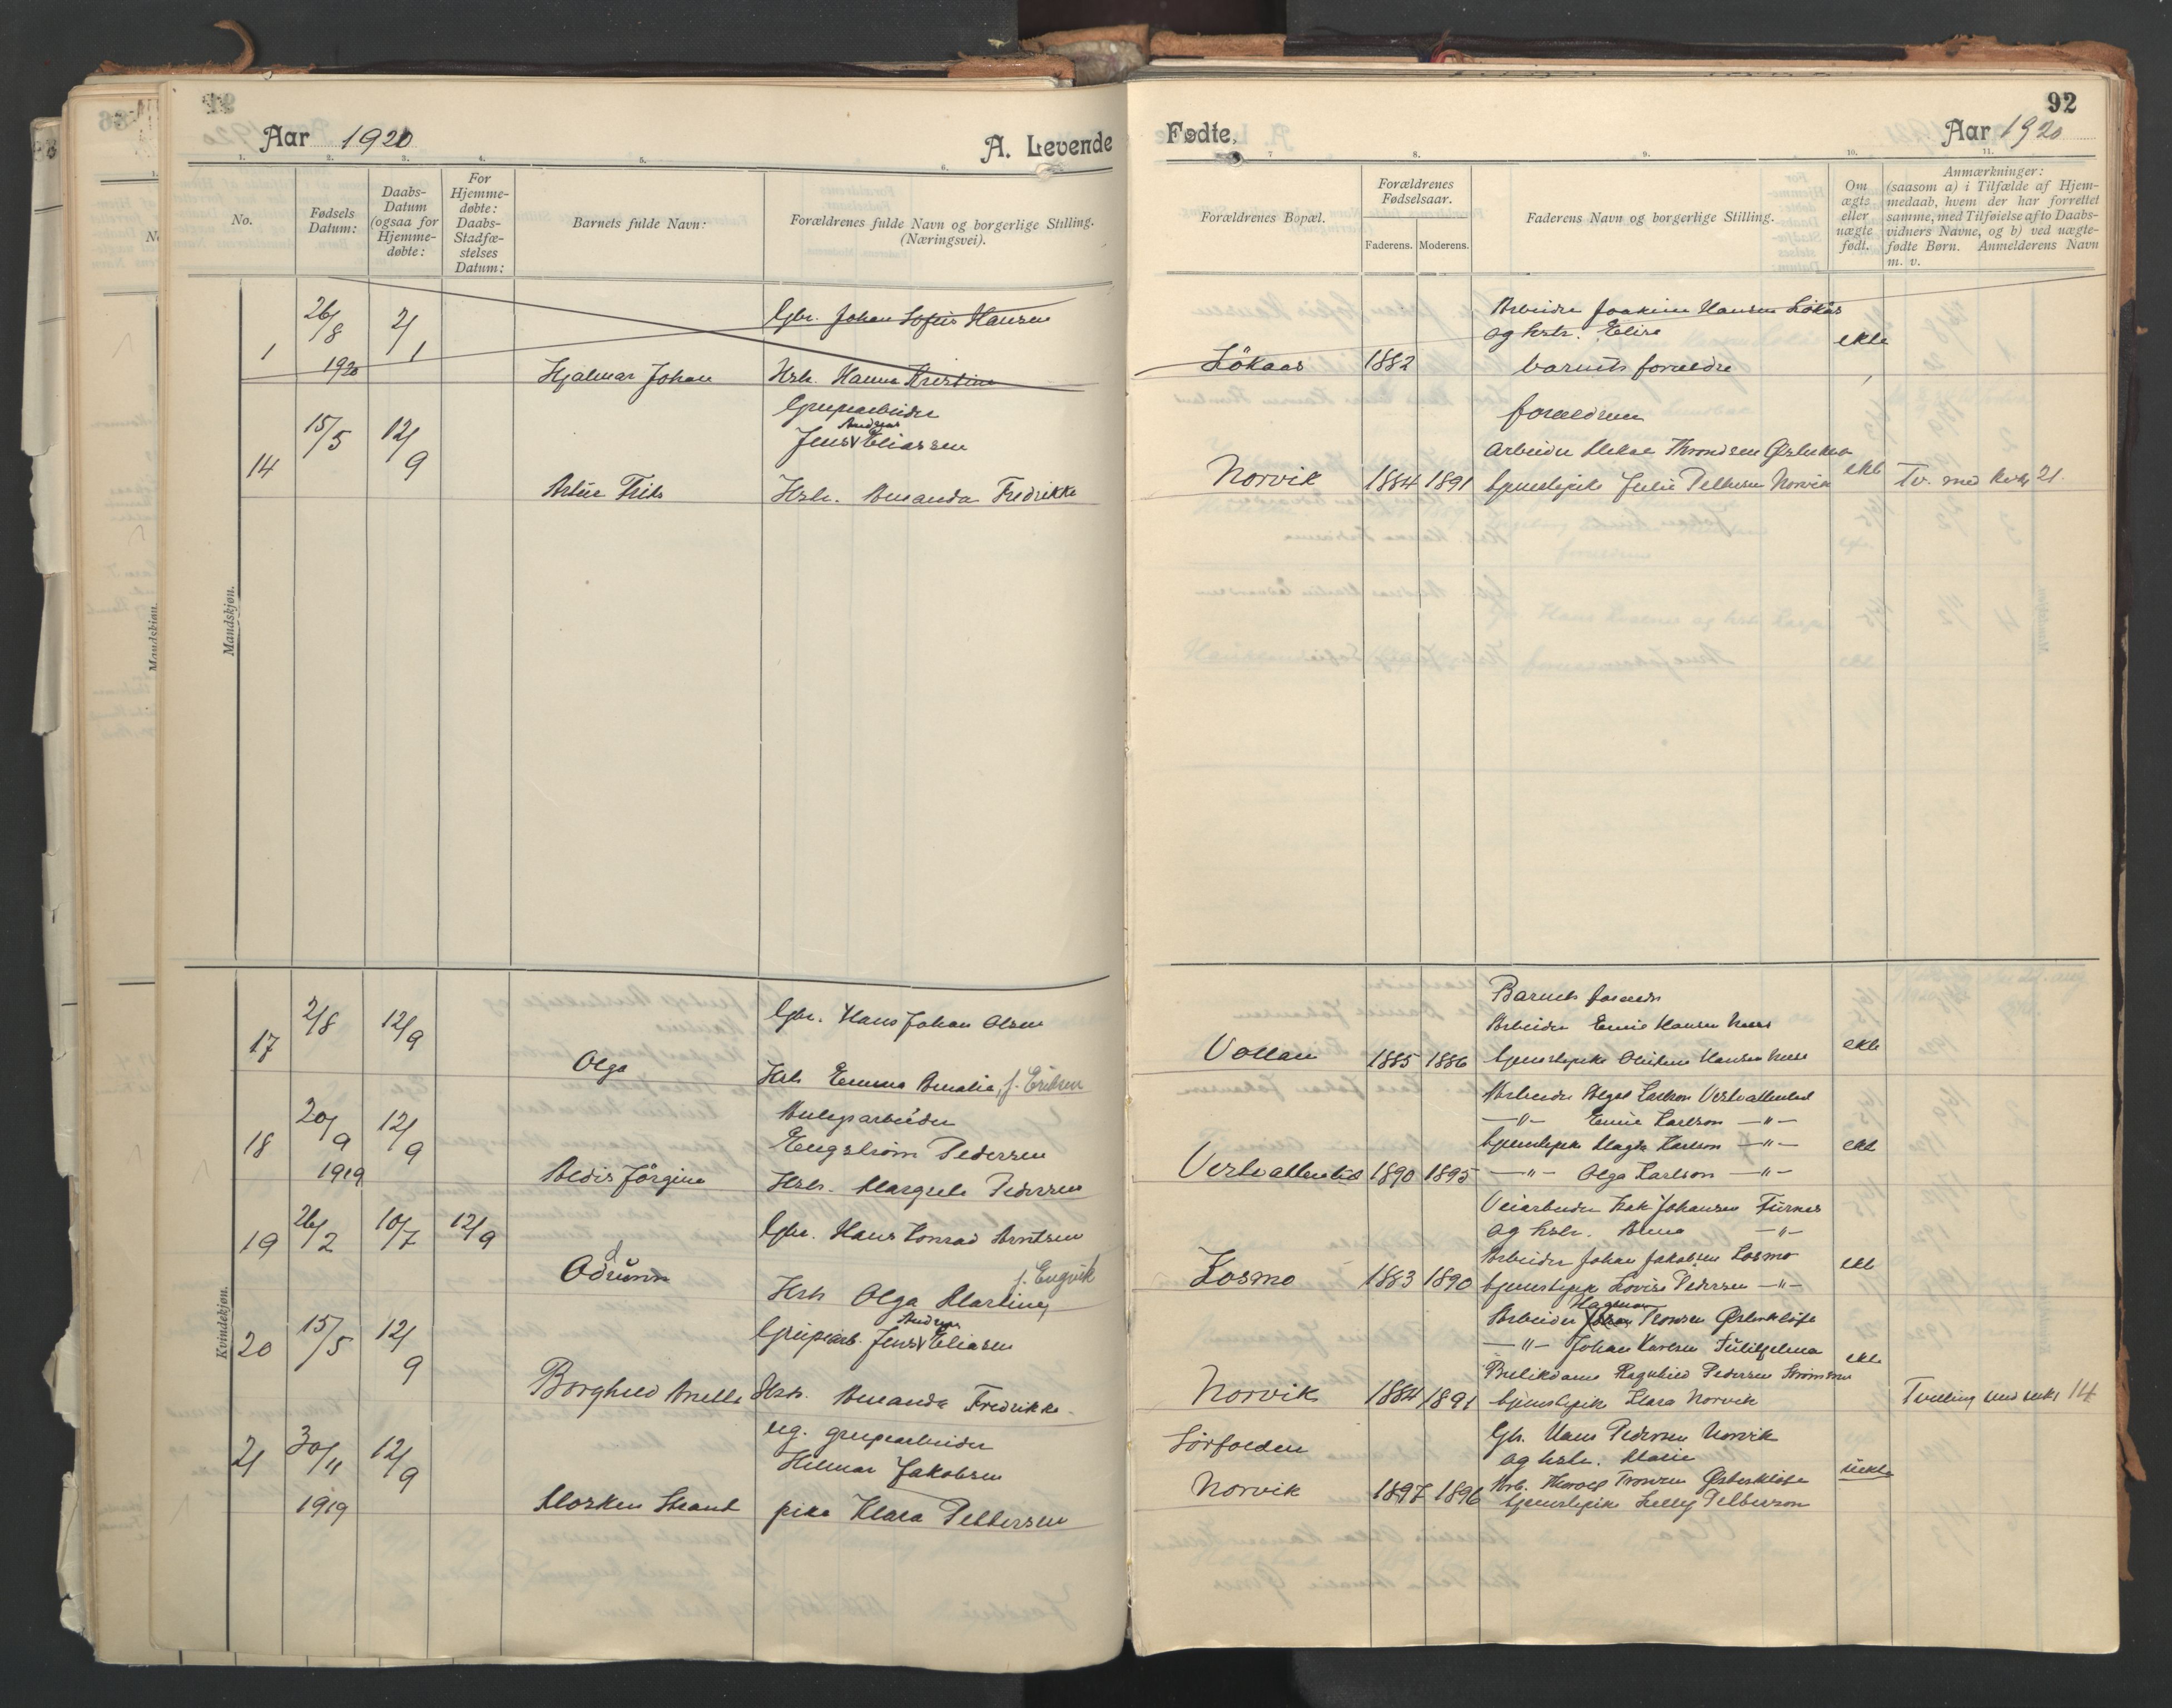 Aar 1920
A. Levende
Fødte,
92
Aar 1920
1. 2. 3. 4. 5. 6. 7 8. 9. 10. 11.
No.
Fødsels
Datum:
Daabs-
Datum
(ogsaa for
Hjemme-
døbte:
For
Hjemme-
døbte:
Daabs-
Stadfæ-
stelses
Datum:
Barnets fulde Navn:
Forældrenes fulde Navn og borgerlige Stilling.
(Næringsvei).
Forældrenes Bopæl.
Forældrenes
Fødselsaar.
Faderens. Moderens.
Faderens Navn og borgerlige Stilling.
Om
ægte
eller
uægte
født.
Anmærkninger:
(saasom a) i Tilfælde af Hjem-
medaab, hvem der har forrettet
samme, med Tilføielse af to Daabs-
vidners Navne, og b) ved uægte-
fødte Børn. Anmelderens Navn
m. v.
Mandskjøn.
1
26/8
1920
2/1
Hjalmar Johan
Gbr. Johan Sofus Hansen
Hstr. Hanna Kristine
Løkaas
1882
Arbeider Joakim Hansen Løkås
og hstr. Elise
barnets forældre
ekte
14
15/5
12/9
Artur Frits
Grupearbeider
Andreas
Jens v Eliassen
Hstr. Amanda Fredrikke
Norvik
1884 1891
forældrene
Arbeider
tjenestepike Julie Pettersen Norvik
ekte
Tv. med kvk 21.
Kvindekjøn.
17
2/8
12/9
Olga
Gbr. Hans Johan Olsen
Hstr Emma Amalia, f. Eriksen
Vollan
1885 1886
Barnets forældre
Arbeider Emil Hansen
tjenestepike Hansen
ekte
18
20/9
1919
12/9
Aldis Jörgine
Anlegsarbeider
Engström Pedersen
Hstr. Margrete Pedersen
1890 1895
Arbeider Karlson
—"— Emil Karlson —"—
tjenestepike Magda Karlson —"—
—"— Olga Karlson —"—
ekte
19
26/2
10/7
12/9
Odrunn
Gbr. Hans Konrad Arntsen
f. Engvik
Hstr Olga Martine
Kosmo
1883 1890
Veiarbeider Isak Johansen Furnes
og hstr. Alma —"—
Arbeider Johan Jakobsen Kosmo
tjenestepike Lovise Pedersen —"—
ekte
20
15/5
12/9
Borghild Anette
Andreas
Grupearb. Jens v Eliasen
Hstr. Amanda Fredrikke
Norvik
1884 1891
Hagman
Arbeider Tronsen Østerkløft
—"— Johan Karlsen
Butikdame Ragnhild Pedersen Strømsnes
tjenestepike Klara Norvik
ekte
Tvilling med mk 14
21
30/11
1919
12/9
ug. grupearbeider
Hilmar Jakobsen
pike Klara Pettersen
Sørfolden
Norvik
1897 1896
Gb. Hans Pedersen Norvik
og hstr. Marie
Arb. Harald Tronsen Østerkløft
tjenestepike Selly Petterson
uekte